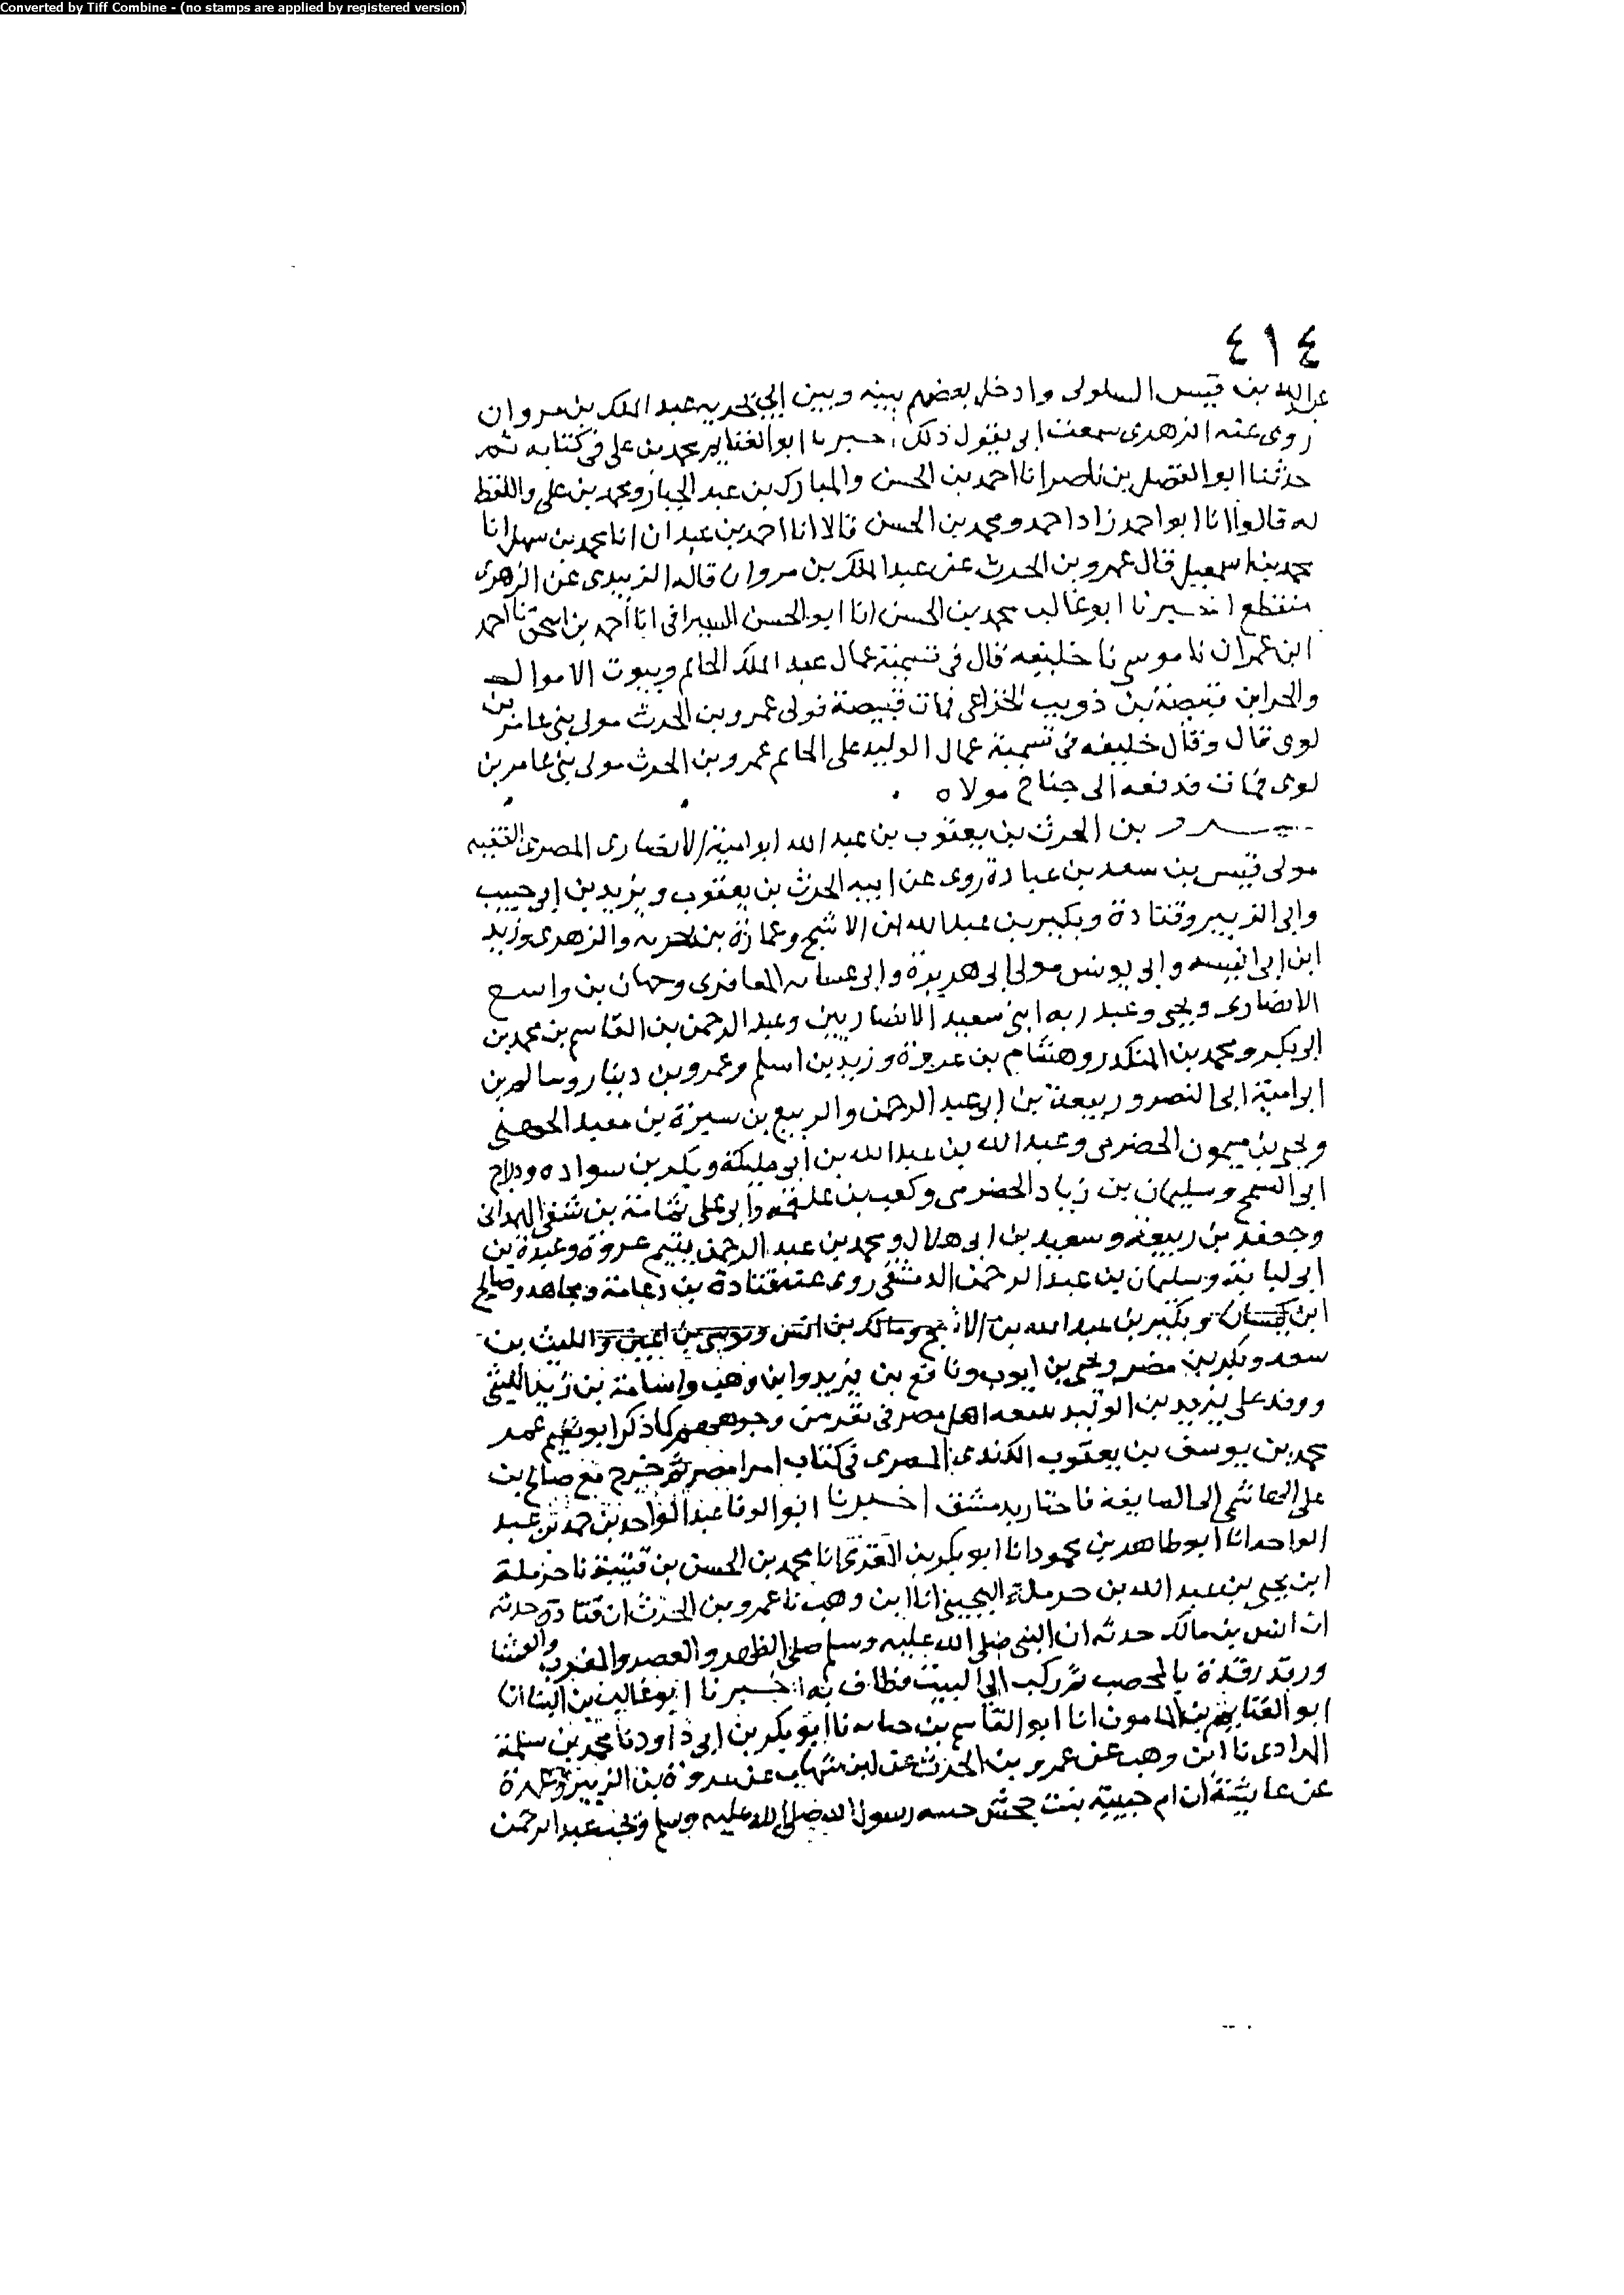 Converted by Tiff Combine - (no stamps are applied by registered version)
٤١٤
عبدالله بن قيس السلولى وادخل بعضهم بينه وبين ابى بحريه عبد الملك بن مروان
روى عنه الزهرى سمعت ابى يقول ذلك اخبرنا ابو الغنايم محمد بن على فى كتابه ثم
حدثنا ابو الفضل بن ناصر انا احمد بن الحسن والمبارك بن عبد الجبار ومحمد بن على واللفظ
له قالوا انا ابو احمد زاد احمد ومحمد بن الحسن قالا انا احمد بن عبدان انا محمد بن سهل انا
محمد بن اسمعيل قال عمرو بن الحرث عن عبد الملك بن مروان قاله الزبيدى عن الزهرى
منقطع اخبرنا ابو غالب محمد بن الحسن انا ابو الحسن السيرافى انا احمد بن اسحق نا احمد
ابن عمران نا موسى نا خليفه قال فى تسمية عمال عبد الملك الخاتم وبيوت الاموال
والخزاين قبيصة بن ذويب الخزاعى فمات قبيصة فولى عمرو بن الحرث مولى بنى عامر بن
لوى قال وقال خليفه فى تسمية عمال الوليد على الخاتم عمرو بن الحرث مولى بنى عامر بن
لوى فمات فدفعه الى جناح مولاه
بن الحرث بن يعقوب بن عبد الله ابو امية الانصارى المصرى الفقيه
مولى قيس بن سعد بن عبادة روى عن ابيه الحرث بن يعقوب ويزيد بن ابى حبيب
وابى الزبير وقتادة وبكير بن عبد الله بن الاشج وعمارة بن غزيه والزهرى وزيد
ابن ابى انيسه وابى يونس مولى ابى هريرة وابى عشانه المعافرى وحبان بن واسع
الانصارى ويحيى وعبد ربه ابنى سعيد الانصاريين وعبد الرحمن بن القاسم بن محمد بن
ابى بكر ومحمد بن المنكدر وهشام بن عروة وزيد بن اسلم وعمرو بن دينار وسالم بن
ابى امية ابى النصر وربيعة بن ابى عبد الرحمن والربيع بن سبرة بن معبد الجهنى
ويحيى بن ميمون الحضرمى وعبد الله بن عبد الله بن ابى مليكة وبكر بن سواده ودراج
ابى السمح وسليمان بن زياد الحضرمى وكعب بن علقمه وابى على ثمامة بن شفى الهمدانى
وجعفر بن ربيعة وسعيد بن ابى هلال ومحمد بن عبد الرحمن يتيم عروة وعبدة بن
ابى لبابة وسليمان بن عبد الرحمن الدمشقى روى عنه قتادة بن دعامة ومجاهد وصالح
ابن كيسان وبكير بن عبد الله بن الاشج ومالك بن انس وموسى بن اعين والليث بن
سعد وبكر بن مضر ويحيى بن ايوب ونافع بن يزيد وابن وهب واسامة بن زيد الليثى
ووفد على يزيد بن الوليد ببيعه اهل مصر فى نفر من وجوههم كما ذكر ابو عمر
محمد بن يوسف بن يعقوب الكندى المصرى فى كتاب امرا مصر ثم خرج مع صالح بن
على الهاشمى الى الصايفة فاجتاز بدمشق اخبرنا ابو الوفا عبد الواحد بن حمد بن عبد
الواحد انا ابو طاهر بن محمود انا ابو بكر بن المقرى انا محمد بن الحسن بن قتيبة نا حرملة
ابن يحيى بن عبد الله بن حرملة التجيبى انا ابن وهب نا عمرو بن الحرث ان قتادة حدثه
ان انس بن مالك حدثه ان النبى صلى الله عليه وسلم صلى الظهر والعصر والمغرب والعشا
ورقد رقدة بالمحصب ثم ركب الى البيت فطاف به اخبرنا ابو غالب بن البنا انا
ابو الغنايم بن المامون انا ابو القاسم بن حبابه نا ابو بكر بن ابى داود نا محمد بن سلمة
المرادى نا ابن وهب عن عمرو بن الحرث عن ابن شهاب عن عروة بن الزبير وعمرة
عن عايشة ان ام حبيبة بنت جحش ختنه رسول الله صلى الله عليه وسلم وتحت عبد الرحمن